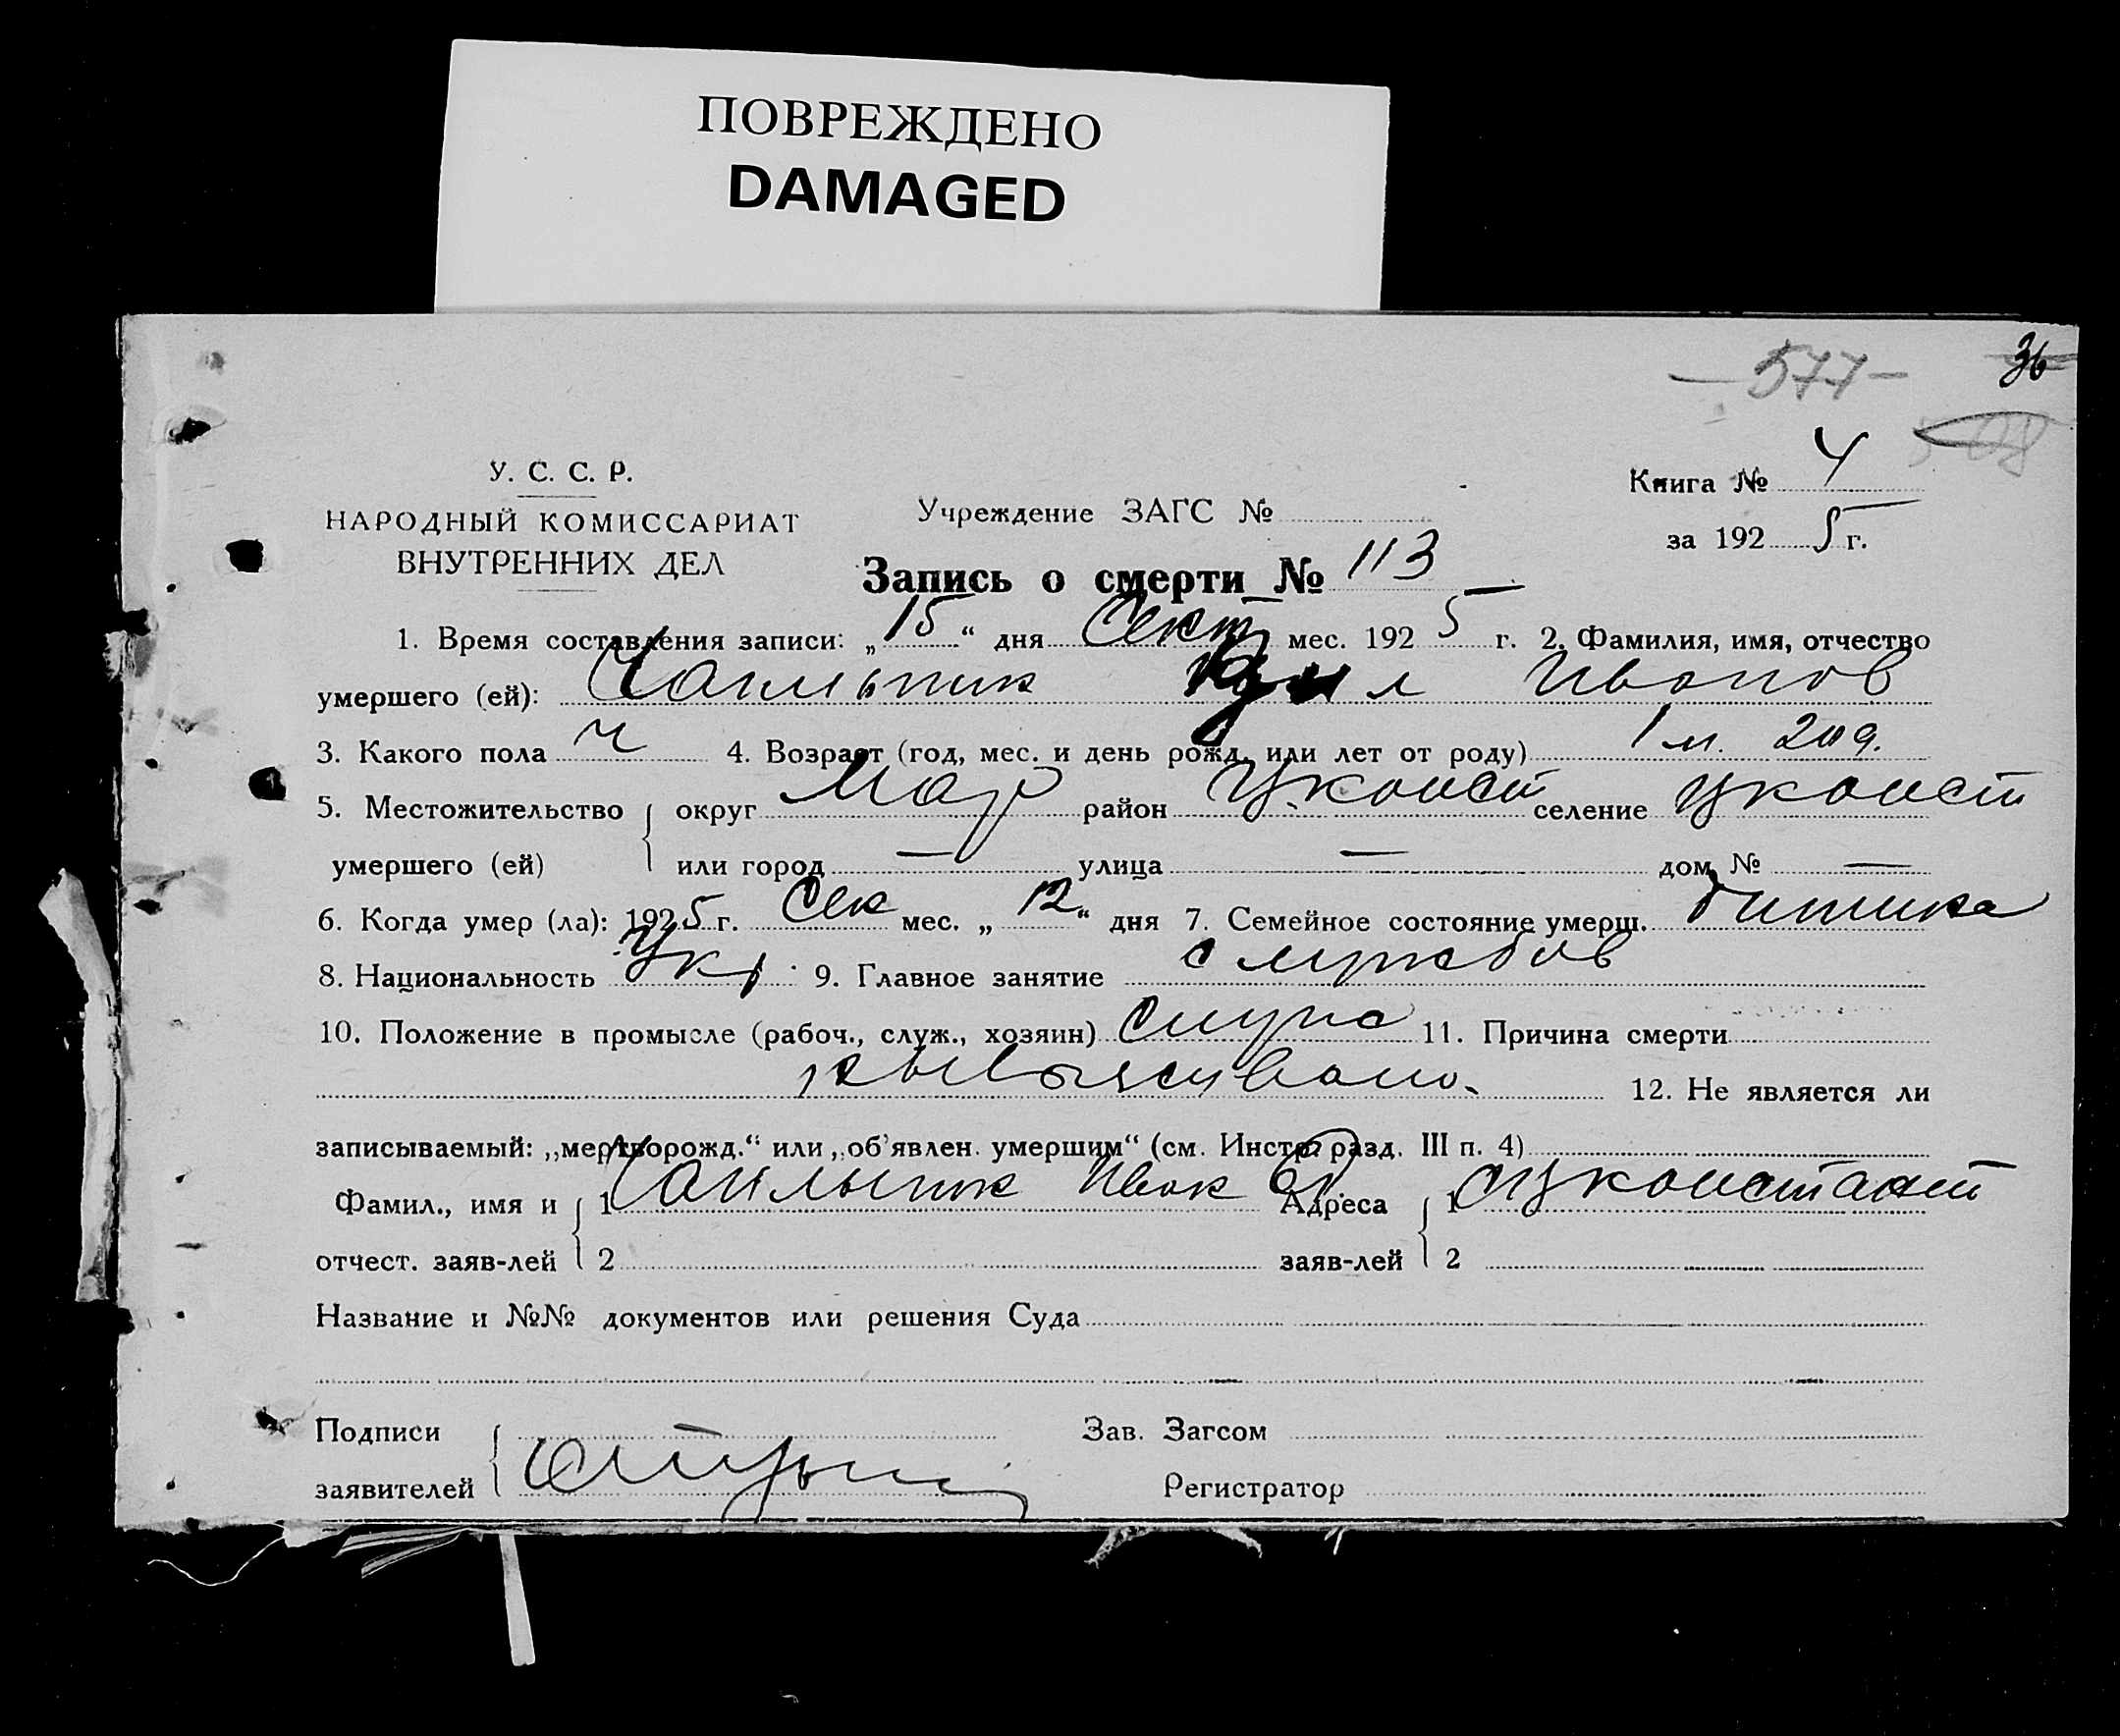 ПОВРЕЖДЕНО
DAMAGED
— 577 — 36
У. С. С. Р.
Книга № 4
НАРОДНЫЙ КОМИССАРИАТ
ВНУТРЕННИХ ДЕЛ
Учреждение ЗАГС №
за 1925 г.
Запись о смерти № 113
1. Время составления записи: „15“ дня Сент мес. 1925 г. 2. Фамилия, имя, отчество
умершего (ей): Иванов
3. Какого пола ч 4. Возраст (год, мес. и день рожд. или лет от роду) 1 м. 20 д.
5. Местожительство округ Мар район Уконст селение Уконст
умершего (ей) или город — улица — дом № —
6. Когда умер (ла): 1925 г. Сен мес. „12“ дня 7. Семейное состояние умерш. дитина
8. Национальность Укр 9. Главное занятие службов
10. Положение в промысле (рабоч., служ., хозяин) 11. Причина смерти
12. Не является ли
записываемый: „мертворожд.“ или „об'явлен. умершим“ (см. Инстр. разд. III п. 4)
Фамил., имя и 1 Иван Адреса 1
отчест. заяв-лей 2 заяв-лей 2
Название и №№ документов или решения Суда
Подписи Зав. Загсом
заявителей Регистратор